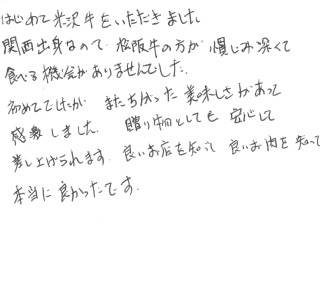 はじめて米沢牛をいただきました。
関西出身なので、松阪牛の方が慣じみ深くて
食べる機会がありませんでした。
初めてでしたが、またちがった美味しさがあって
感激しました。 贈り物としても安心して
差し上げられます。良いお店を知って 良いお肉を知って
本当に良かったです。